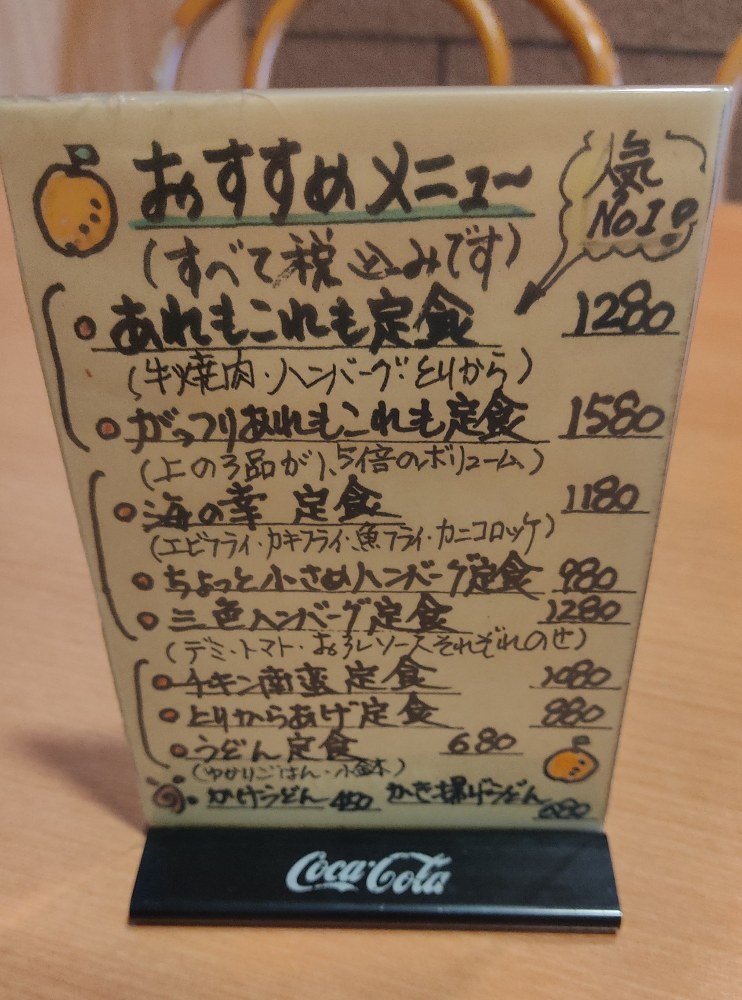 おすすめメニュー
人気
No1!
(すべて税込みです)
あれもこれも定食 1280
(牛焼肉・ハンバーグ・とりから)
がっつりあれもこれも定食 1580
(上の3品が1.5倍のボリューム)
海の幸 定食 1180
(エビフライ・カキフライ・魚フライ・カニコロッケ)
ちょっと小さめハンバーグ定食 980
三色ハンバーグ定食 1280
(デミ・トマト・おろしソースそれぞれのせ)
チキン南蛮 定食 1080
とりからあげ定食 880
うどん定食 680
(ゆかりごはん・小鉢)
かけうどん 480 かき揚げうどん 680
Coca-Cola